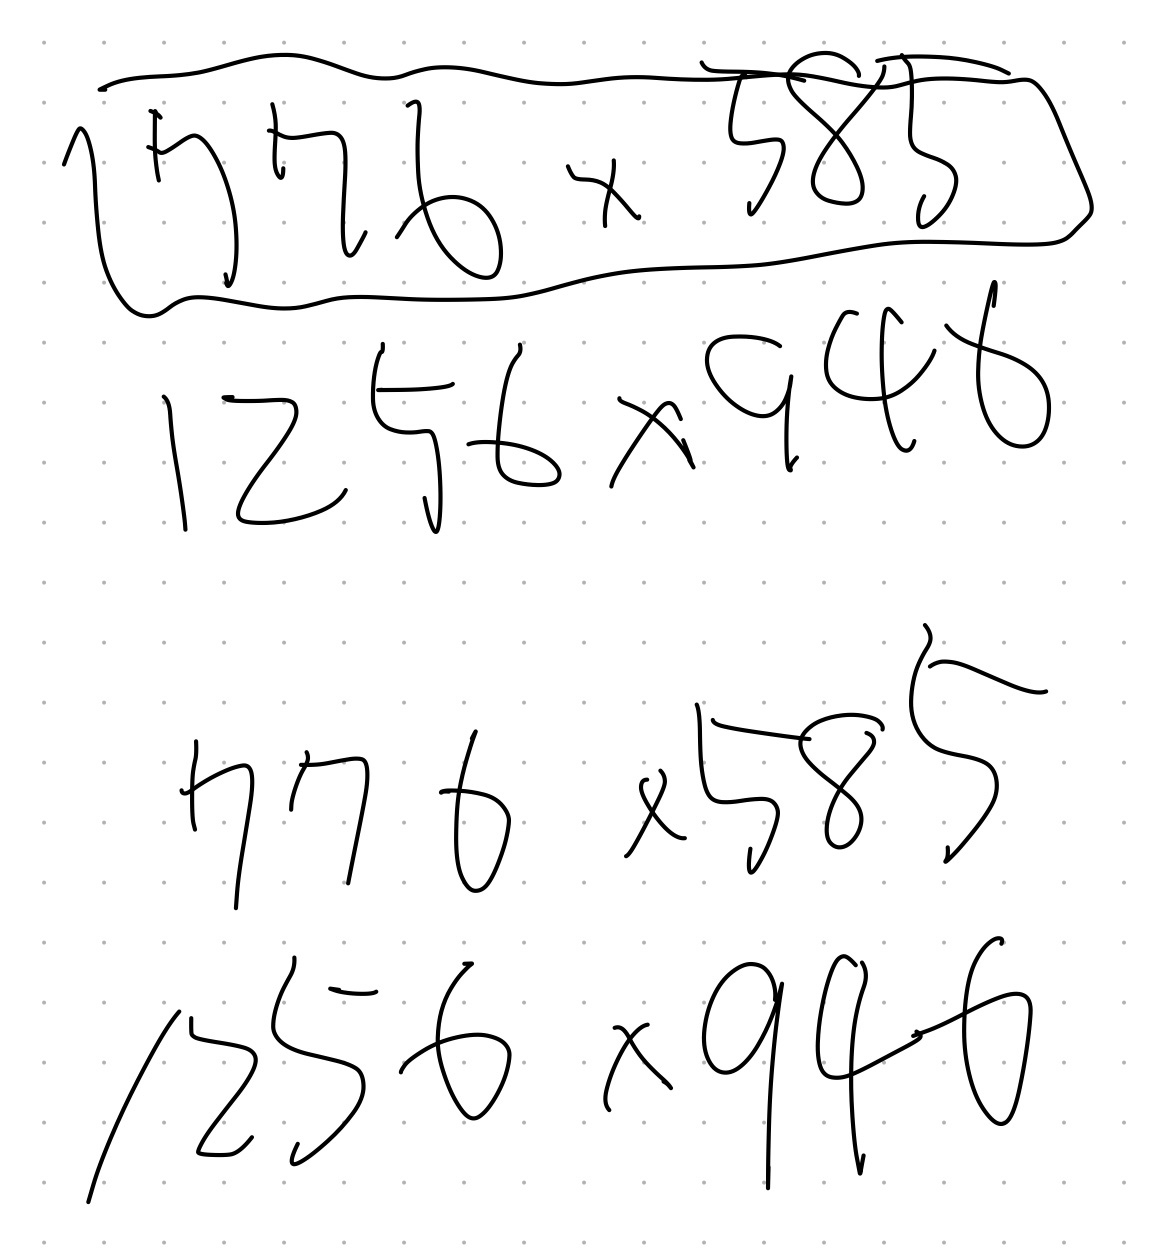 776 x 585
1256 x 946
776 x 585
1256 x 946